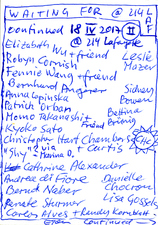 WAITING FOR @ 214 LAF
continued 18 IV 2017 II
@ 214 Lafayette
Elizabeth Wu + friend
Robyn Cornish Leslie
Fennie Wang + friend Mazer
Bernhard Angerer
Anna Sidney
Patrick Urban Bowen
Momo Takahashi + friend Bettina
Kyoko Sato
Christopher Hart Chambers
"Shy" via Curtis
Cathrine Alexander
Andrea del Fiore Danielle
Bernd Naber Chocron
Renate Sturmer Lisa Gossels
Carlos Alves + Randy
continued